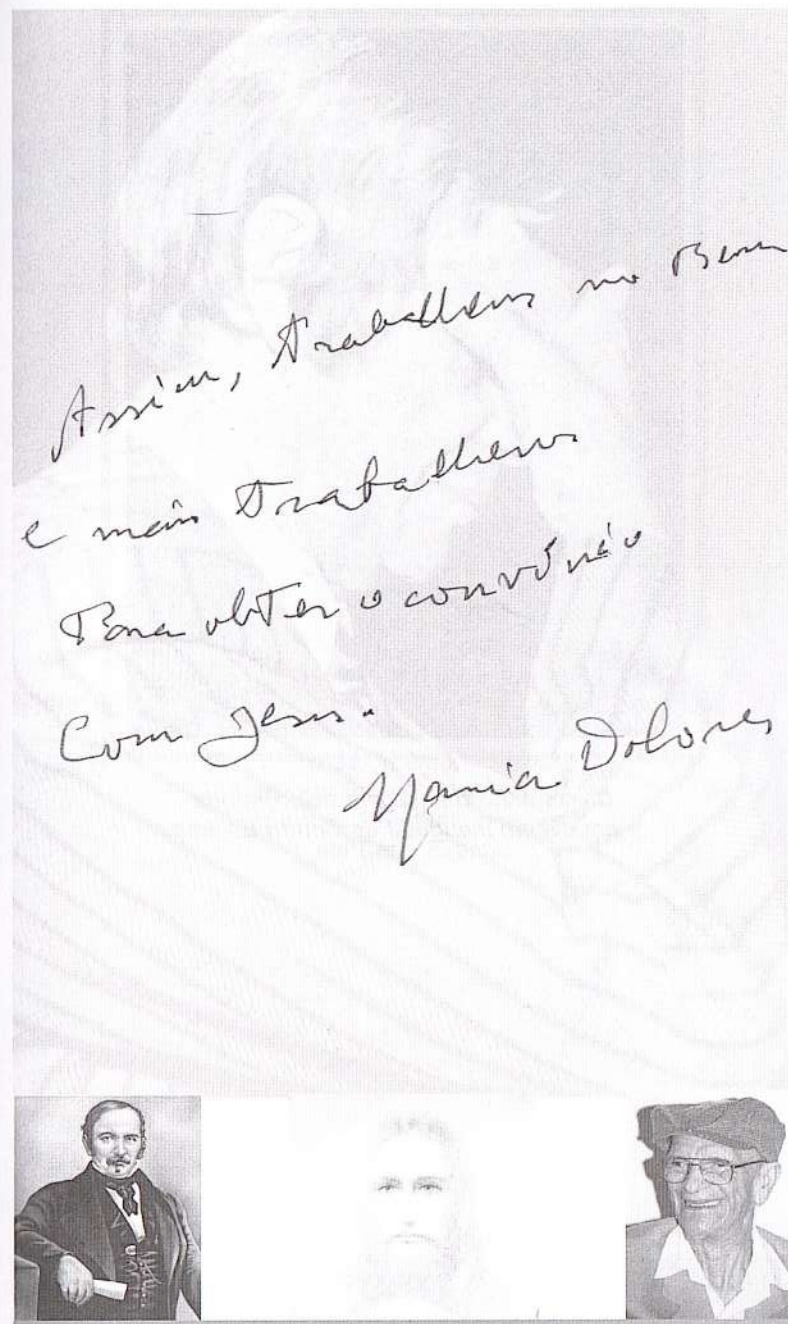 Assim, trabalhemos no Bem
e mais trabalhemos
Para obter o convênio
Com Jesus.
Maria Dolores